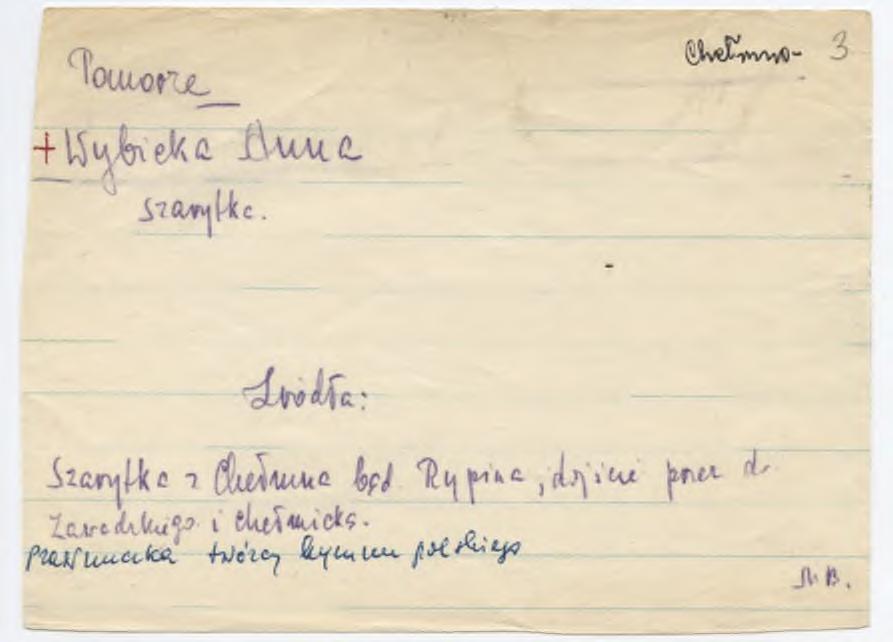 Chełmno- 3
Pomorze
+ Wybicka Anna
szarytka.
Źródła:
Szarytka z Chełmna bąd Rypina, dojście przez dr
Zawadzkiego i Chełmicką.
prawnuczka twórcy hymnu polskiego
M B.